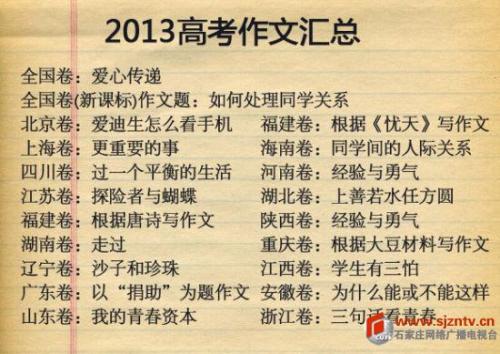 2013高考作文汇总
全国卷：爱心传递
全国卷(新课标)作文题：如何处理同学关系
北京卷：爱迪生怎么看手机 福建卷：根据《忧天》写作文
上海卷：更重要的事 海南卷：同学间的人际关系
四川卷：过一个平衡的生活 河南卷：经验与勇气
江苏卷：探险者与蝴蝶 湖北卷：上善若水任方圆
福建卷：根据唐诗写作文 陕西卷：经验与勇气
湖南卷：走过 重庆卷：根据大豆材料写作文
辽宁卷：沙子和珍珠 江西卷：学生有三怕
广东卷：以“捐助”为题作文 安徽卷：为什么能或不能这样
山东卷：我的青春资本 浙江卷：三句话看青春
www.sjzntv.cn
石家庄网络广播电视台